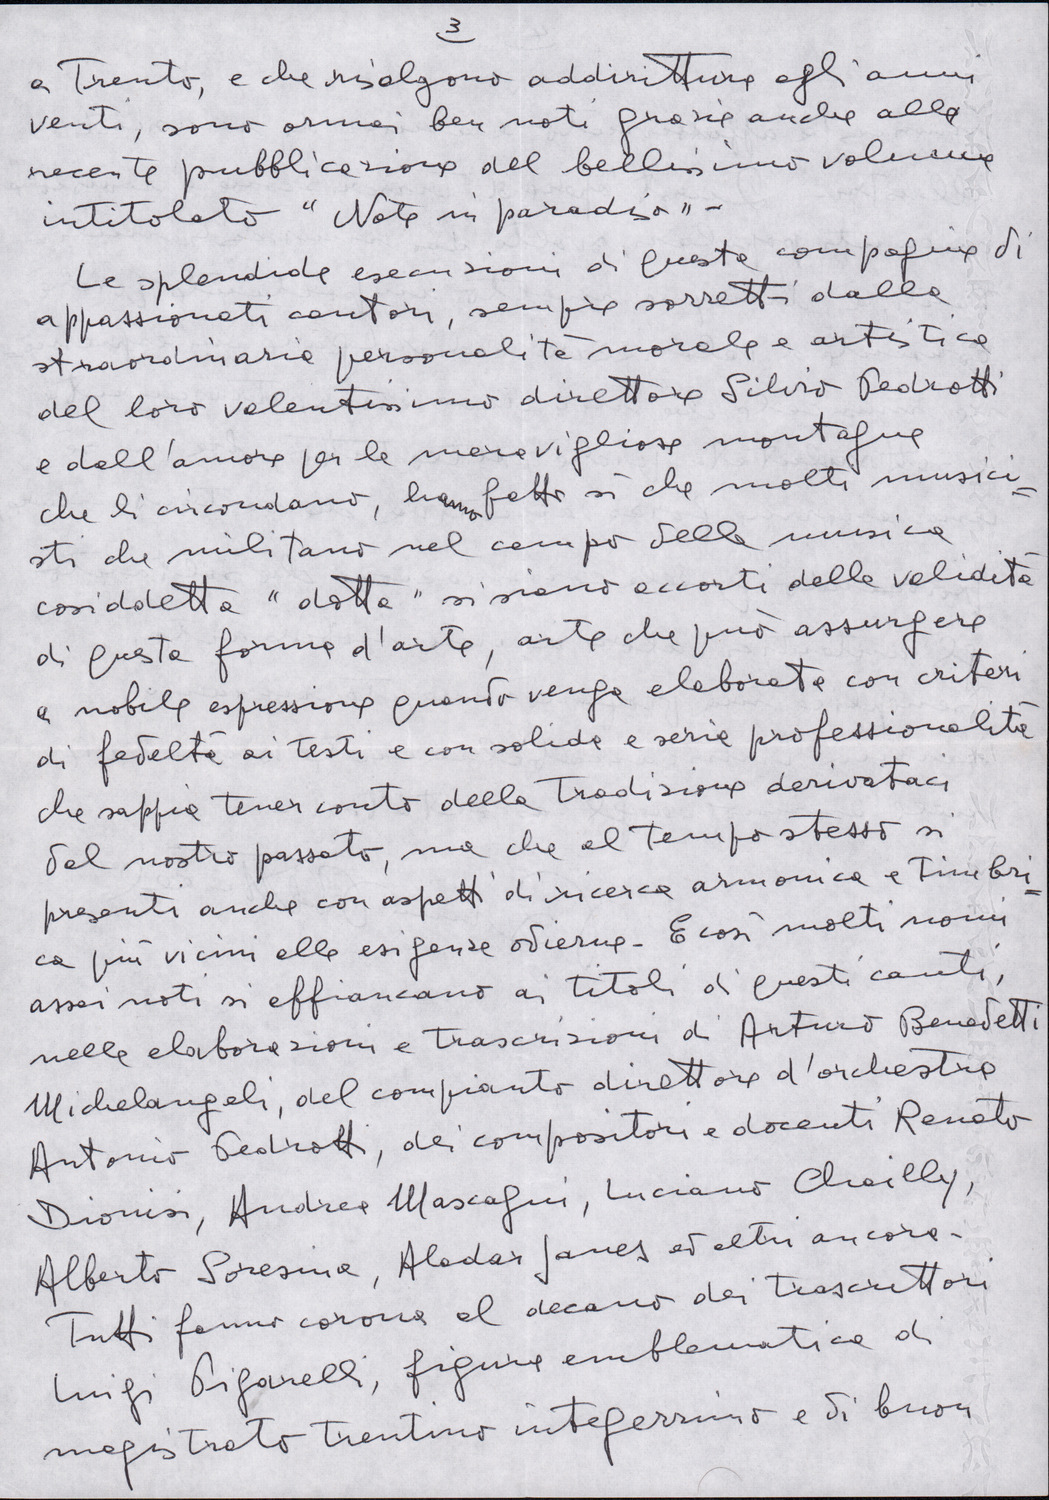 3
a Trento, e che risalgono addirittura agli anni
venti, sono ormai ben noti grazie anche alla
recente pubblicazione del bellissimo volume
intitolato "Note in paradiso" -
Le splendide esecuzioni di questa compagine di
appassionati cantori, sempre sorretti dalla
straordinaria personalità morale e artistica
del loro valentissimo direttore Silvio Pedrotti
e dall'amore per le meravigliose montagne
che li circondano, hanno fatto sì che molti musici=
sti che militano nel campo della musica
cosiddetta "dotta" si siano accorti della validità
di questa forma d'arte, arte che può assurgere
a nobile espressione quando venga elaborata con criteri
di fedeltà ai testi e con solida e seria professionalità
che sappia tener conto della tradizione derivataci
dal nostro passato, ma che al tempo stesso si
presenti anche con aspetti di ricerca armonica e timbri=
ca più vicini alle esigenze odierne - E così molti nomi
assai noti si affiancano ai titoli di questi canti,
nelle elaborazioni e trascrizioni di Arturo Benedetti
Michelangeli, del compianto direttore d'orchestra
Antonio Pedrotti, dei compositori e docenti Renato
Dionisi, Andrea Mascagni, Luciano Chailly,
Alberto Soresina, Aladar Janes ed altri ancora -
Tutti fanno corona al decano dei trascrittori
Luigi Pigarelli, figura emblematica di
magistrato trentino integerrimo e di buon